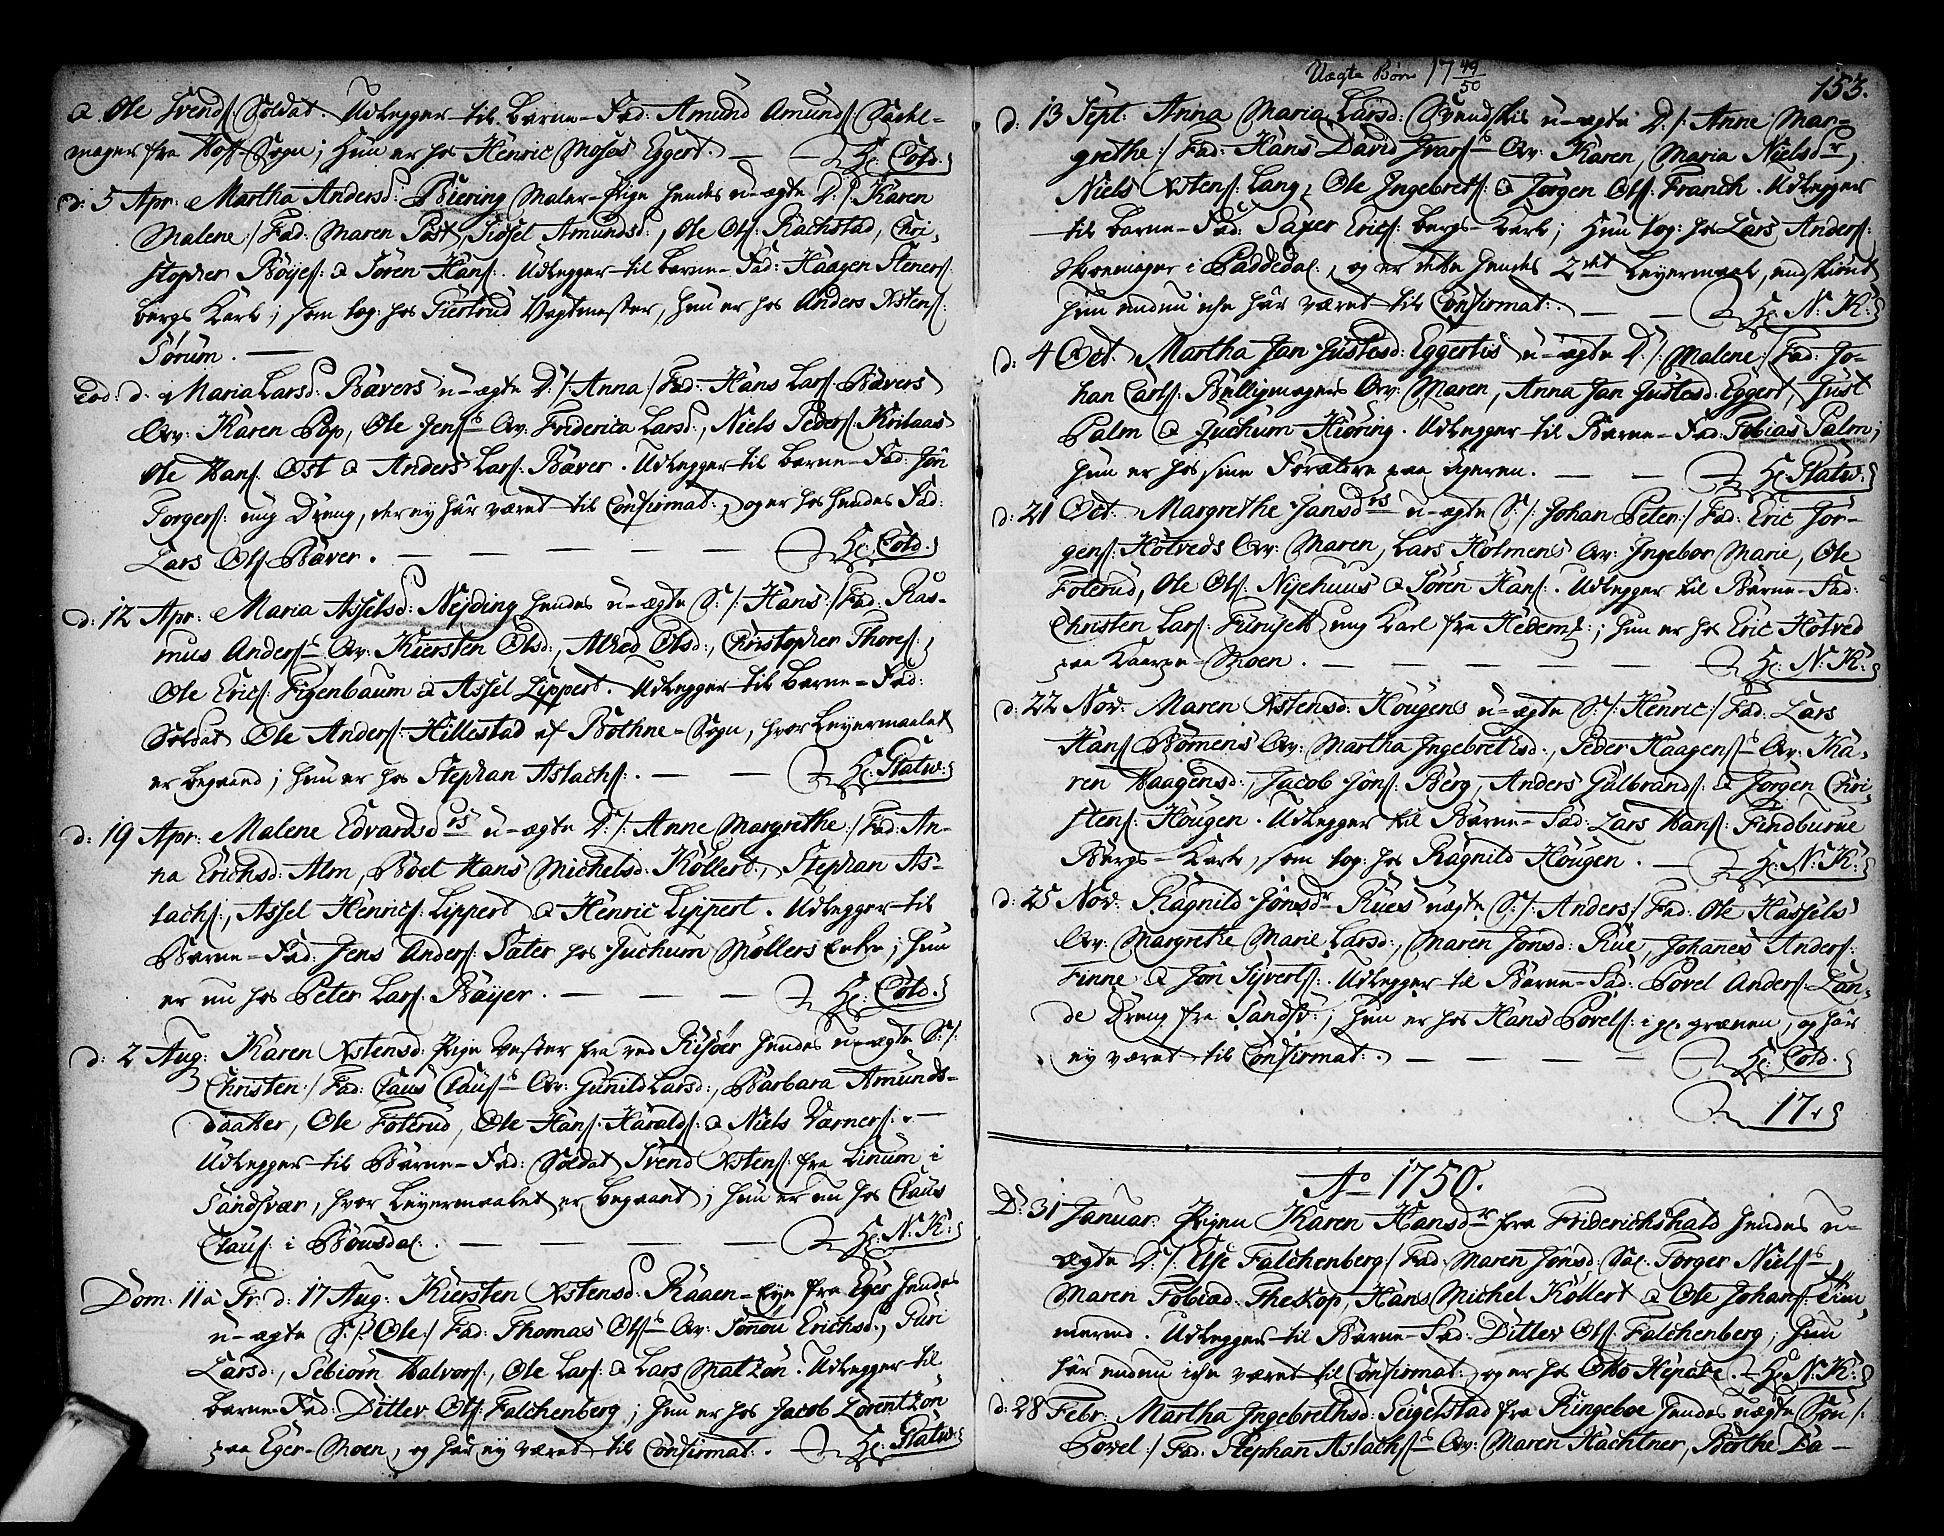 & Ole Svends: Soldat. Udlegger til Barne-Fad: Amund Amunds: Sadel-
mager fra Hoff-Sogn; Hun er hos Henric Moses Eggert. — — H: Cold.
d: 5 Apr: Martha Andersd: Biering Maler-Pige hendes u-ægte D:/: Karen
Malene:/ Fad: Maren Post, Sidsel Amundsd:, Ole Ols: Rachstad, Chri-
stopher Böyes: & Sören Hans: Udlegger til Barne-Fad: Haagen Steners:
bergs Karl; som log: hos Siertrud Vagtmester, hun er hos Anders Xstens:
Sörum. —
Eod: d: Maria Larsd: Bævers u-ægte D:/: Anna:/ Fad: Hans Lars: Bævers
Qv: Karen Pop, Ole Jens: Qv: Friderica Larsd:, Niels Peders: Krilaas
Ole Hans: Ost & Anders Lars: Bæver. Udlegger til Barne-Fad: Jon
Torgers: ung Dreng, der ey har været til Confirmat: og er hos hendes Fad:
Lars Ols: Bæver. — — — — — H: Cold.
d: 12 Apr: Maria Asselsd: Nejding hendes u-ægte S:/: Hans:/ Fad: Ras-
mus Anders: Qv: Kiersten Olsd:, Alhed Olsd:, Christopher Thores:,
Ole Erics: Figenbaum & Assel Lippert. Udlegger til Barne-Fad:
Soldat Ole Anders: Hillestad af Bothne-Sogn, hvor Leyermaalet
er begaaed; hun er hos Stephan Aslachs:. — — H: Statw:
d: 19 Apr: Malene Edvardsd rs u-ægte D:/: Anne Margrethe:/ Fad: An-
na Erichsd: Alm, Boel Hans Michelsd: Kollert, Stephan As-
lachs:, Assel Henrics: Lippert & Henric Lippert. Udlegger til
Barne-Fad: Jens Anders: Sater hos Juchum Möllers Enke; hun
er nu hos Peter Lars: Bäyer. — — — H: Cold.
d: 2 Aug: Karen Xstensd: Pige Vester fra ved Risöer hendes u-ægte S:/:
Christen:/ Fad: Claus Claus: Qv: Gunild Larsd:, Barbara Amunds-
daatter, Ole Foterud, Ole Hans: Haralds: & Niels Værners:. —
Udlegger til Barne-Fad: Soldat Svend Xstens: fra Linum i
Sandsvær, hvor Leyermaalet er begaaet; hun er nu hos Claus
Claus: i Bousdal. — — — — H: N: K:
Dom: 11 a Tr: d: 17 Aug: Kiersten Xstensd: Raaen-Eye fra Eger hendes
u-ægte S:/: Ole:/ Fad: Thomas Ols: Qv: Sönöu Erichsd:, Siri
Larsd:, Sebiörn Halvors:, Ole Lars: & Lars Matzon. Udlegger til
Barne-Fad: Ditlev Ols: Falchenberg; hun er hos Jacob Lorentzon
paa Eger-Moen, og har ey været til Confirmat. — H: Statw:
Uægte Börn 17 49/50
153.
d: 13 Sept: Anna Maria Larsd: Svendskes u-ægte D:/: Anne Mar-
grethe:/ Fad: Hans David Ivars: Qv: Karen, Maria Nielsd r,
Niels Xstens: Lang, Ole Ingebrets: & Jörgen Ols: Franch. Udlegger
til Barne-Fad: Saxer Erics: bergs-Karl; Hun log: hos Lars Anders:
Skoemager i Paddedal:, og er dette hendes 2det Leyermaal, endskiönt
hun endnu iche har været til Confirmat:. — — H: N: K:
d: 4 Oct: Martha Jan Justesd: Eggertis u-ægte D:/: Malene:/ Fad: Jo-
han Carls: Bælligmagers Qv: Maren, Anna Jan Justesd: Eggert, Just
Palm & Juchum Hiöring. Udlegger til Barne-Fad: Tobias Palm;
hun er hos sine Forældre paa Ageren. — — H: Statw:
d: 21 Oct: Margrethe Jansd rs u-ægte S:/: Johan Peter:/ Fad: Eric Jör-
gens: Hotveds Qv: Maren, Lars Holmens Qv: Ingebor Marie, Ole
Foterud, Ole Ols: Nyehuus & Sören Hans:. Udlegger til Barne-Fad:
Christen Lars: Furusett ung Karl fra Hedem:; hun er hos Eric Hotved
paa Kaarpe-Moen. — — — — — H: N: K:
d: 22 Nov: Maren Xstensd: Hougens u-ægte S:/: Henric:/ Fad: Lars
Hans: Bömens Qv: Martha Ingebretsd:, Peder Haagens: Qv: Ka-
ren Haagensd:, Jacob Jons: Berg, Anders Gulbrands: & Jörgen Chri-
stens: Hougen. Udlegger til Barne-Fad: Lars Hans: Findburue
Bergs-Karl, som log: hos Ragnild Hougen. — H: N: K:
d: 25 Nov: Ragnild Jonsd r Rues uægte S:/: Anders:/ Fad: Ole Hassels
Qv: Margrethe Marie Larsd:, Maren Jonsd: Rue, Johanes Anders:
Finne & Jon Syverts:. Udlegger til Barne-Fad: Povel Anders: Lan-
de Dreng fra Sandsv:, hun er hos Hans Povels: i gl. grænen, og har
ey været til Confirmat:. — — — — H: Cold.
17.
Ao 1750.
D: 31 Januar: Pigen Karen Hansd r fra Friderichshald hendes u-
ægte D:/: Else Falchenberg:/ Fad: Maren Jonsd: Sal: Torger Niels:,
Maren Tobiæd: Thekop, Hans Michel Kollert & Ole Johans: Tim-
mermd. Udlegger til Barne-Fad: Ditlev Ols: Falchenberg; hun
har endnu iche været til Confirmat: og er hos Otto Kepche. H: N: K:
d: 28 Febr: Martha Ingebrethsd: Seigelstad fra Ringeboe hendes uægte Sön /:
Povel:/ Fad: Stephan Aslachs: Qv: Maren Hachtner, Berthe Da-